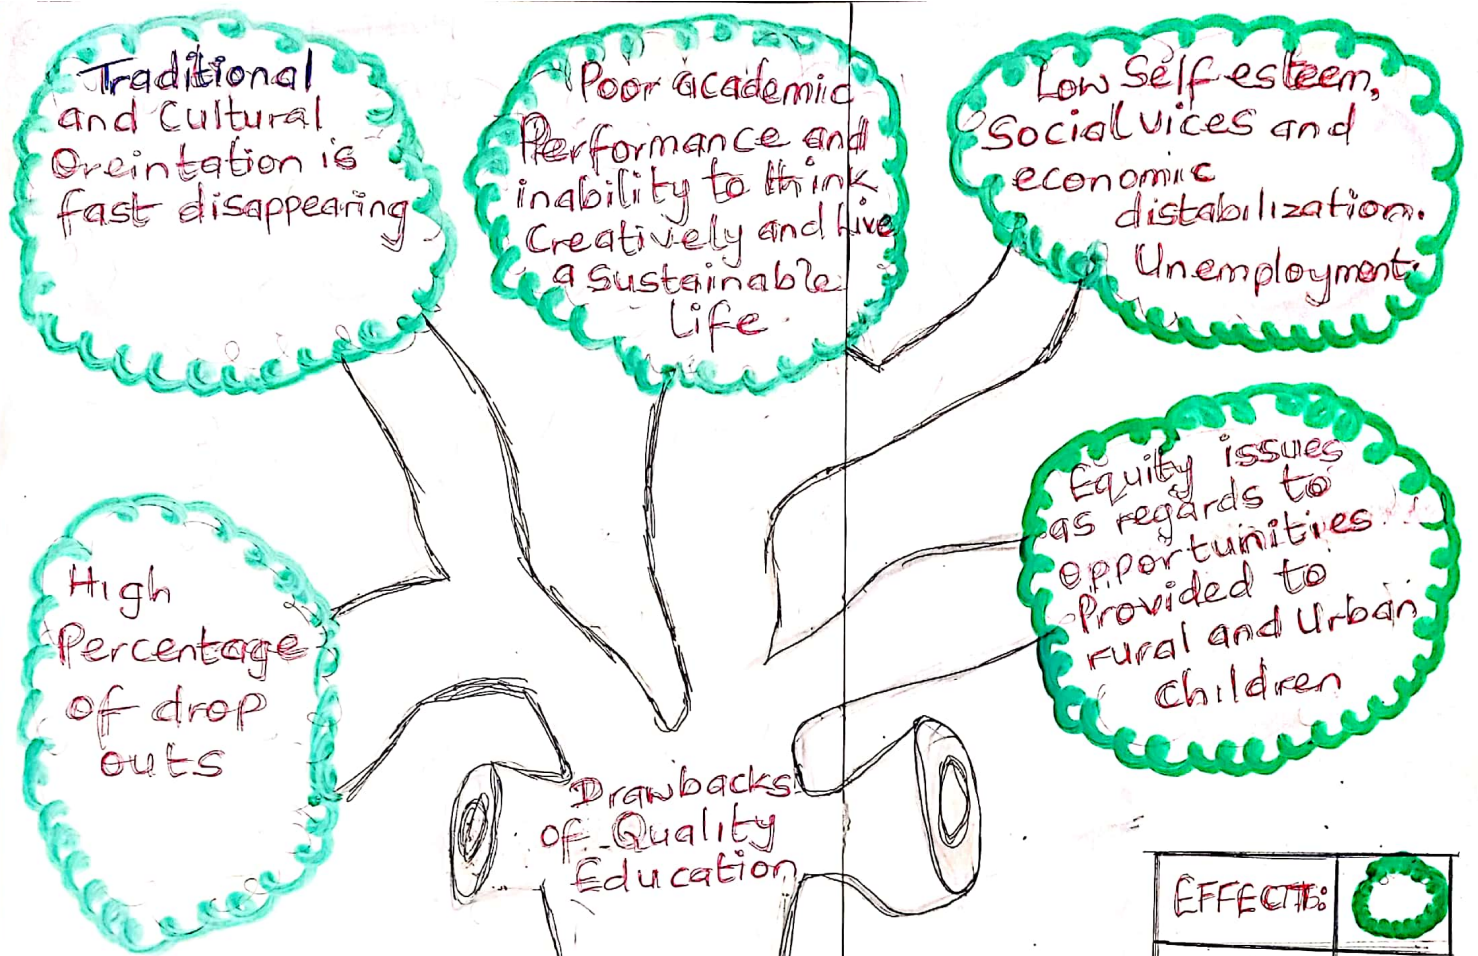 Traditional
and Cultural
Oreintation is
fast disappearing
Poor academic
Performance and
inability to think
Creatively and Live
a Sustainable
Life.
Low Self esteem,
Social vices and
economic
distabilization.
Unemployment.
Equity issues
as regards to
opportunities
Provided to
rural and Urban
Children
High
Percentage
of drop
outs
Drawbacks
of Quality
Education
EFFECTS: